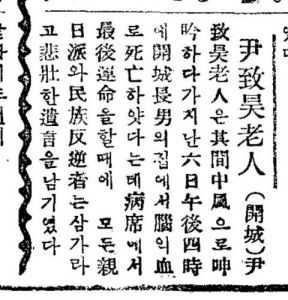 尹致昊老人 (開城) 尹
致昊老人은其間中風으로呻
吟하다가지난六日午後四時
에開城長男의집에서腦의血
로死亡하얏다는데病席에서
最後運命을할때에 모든親
日派와民族反逆者는삼가라
고悲壯한遺言을남기였다